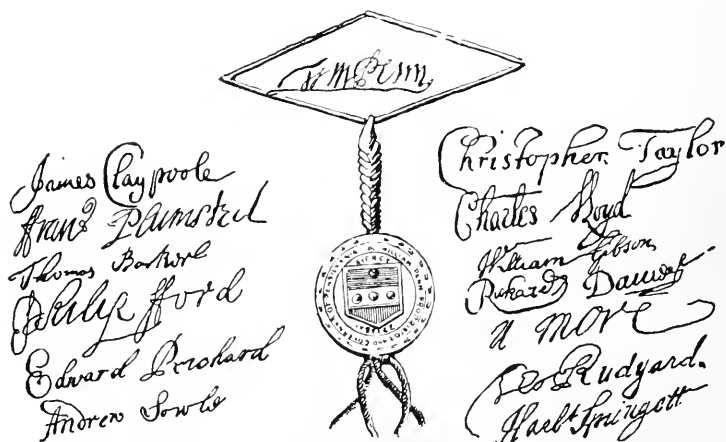 Wm Penn
James Claypoole
Franc Plumsted
Thomas Barker
Philip Ford
Edward Prichard
Andrew Sowle
Christopher Taylor
Charles Lloyd
William Gibson
Richard Davies
N More
Tho Rudyard.
Harbt Springett
MERCY
JUSTICE